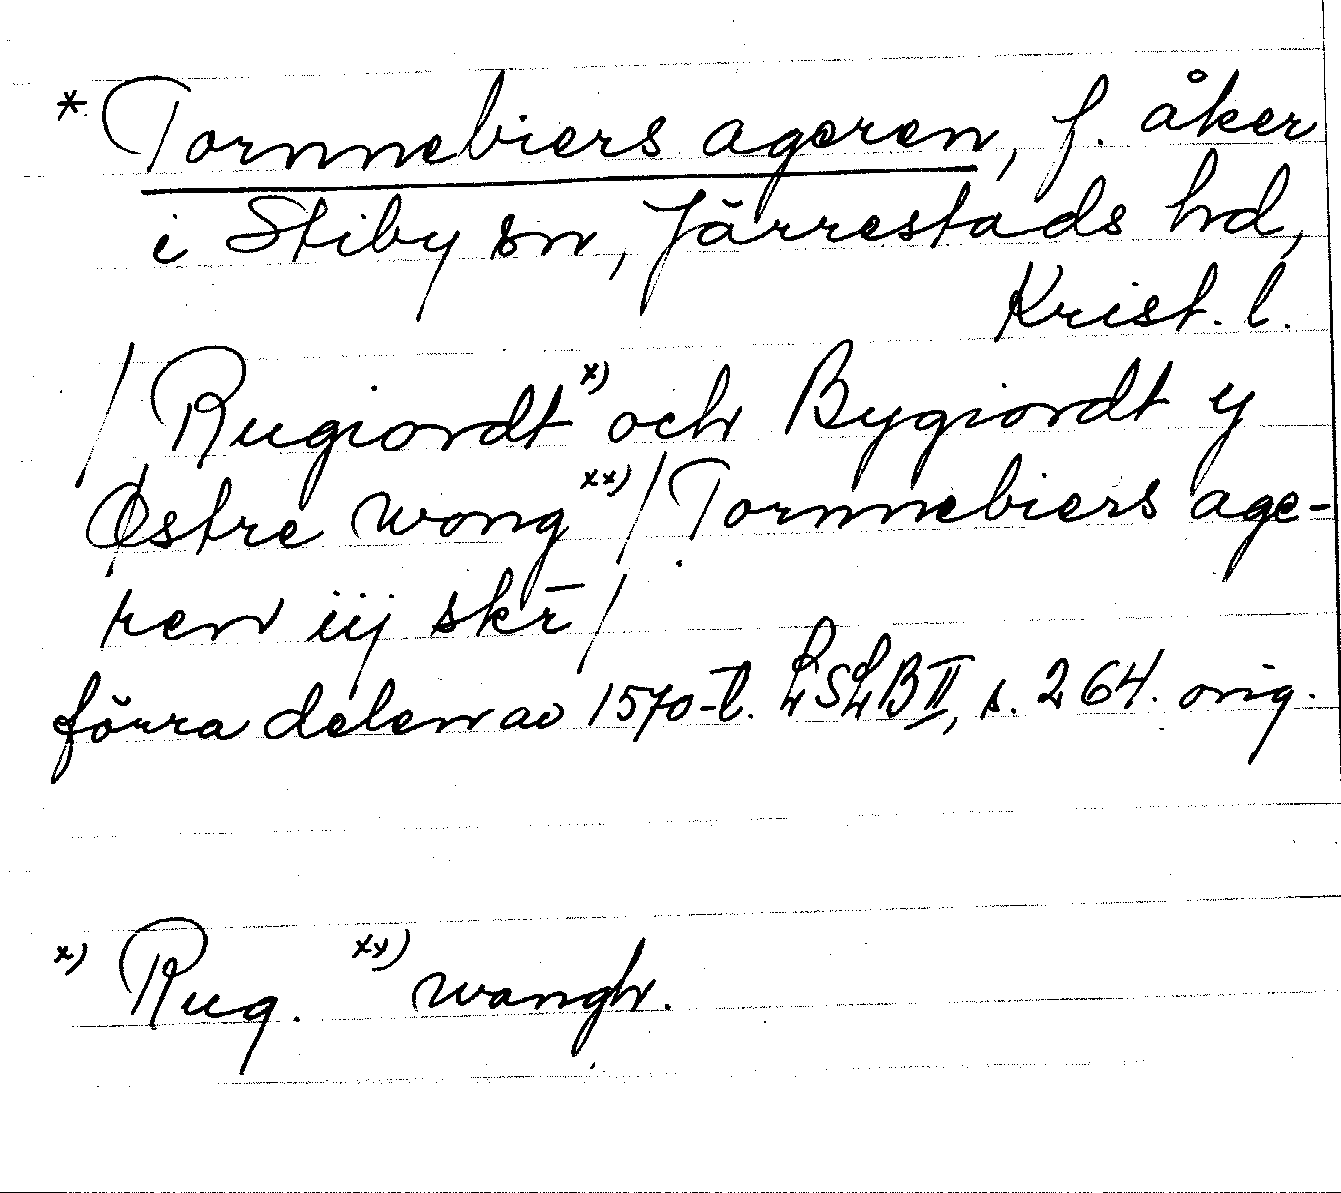 * Tornnebiers ageren, f. åker
i Stiby sn, Järrestads hd,
Krist. l.
/ Rugiordt x) och Bygiordt y
Østre wong xx) / Tornnebiers age-
ren iij skr̄ /
förra delen av 1570-t. LSLB II, s. 264. orig.
x) Rug. xx) wangh.